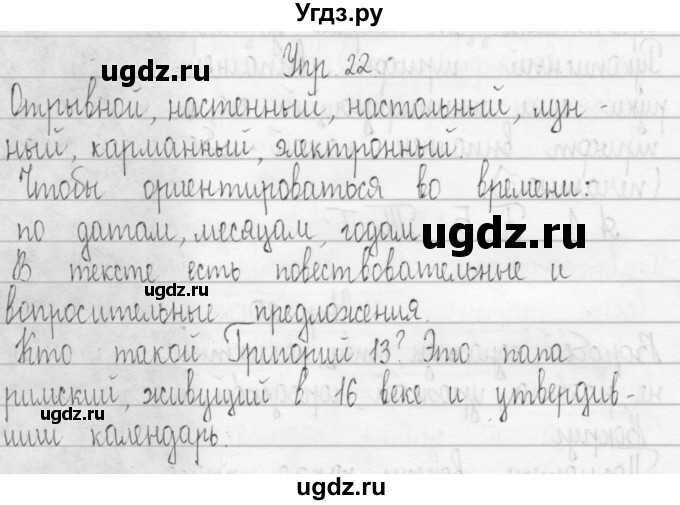 Угдз.ру
Упр. 22
ugdz.ru
Отрывной, настенный, настольный, лун-
ный, карманный, электронный.
ugdz.ru
Чтобы ориентироваться во времени:
по датам, месяцам, годам
ugdz.ru
В тексте есть повествовательные и
ugdz.ru
вопросительные предложения.
Кто такой Григорий 13? Это папа
римский, живущий в 16 веке и утвердив-
ugdz.ru
ший календарь.
ugdz.ru